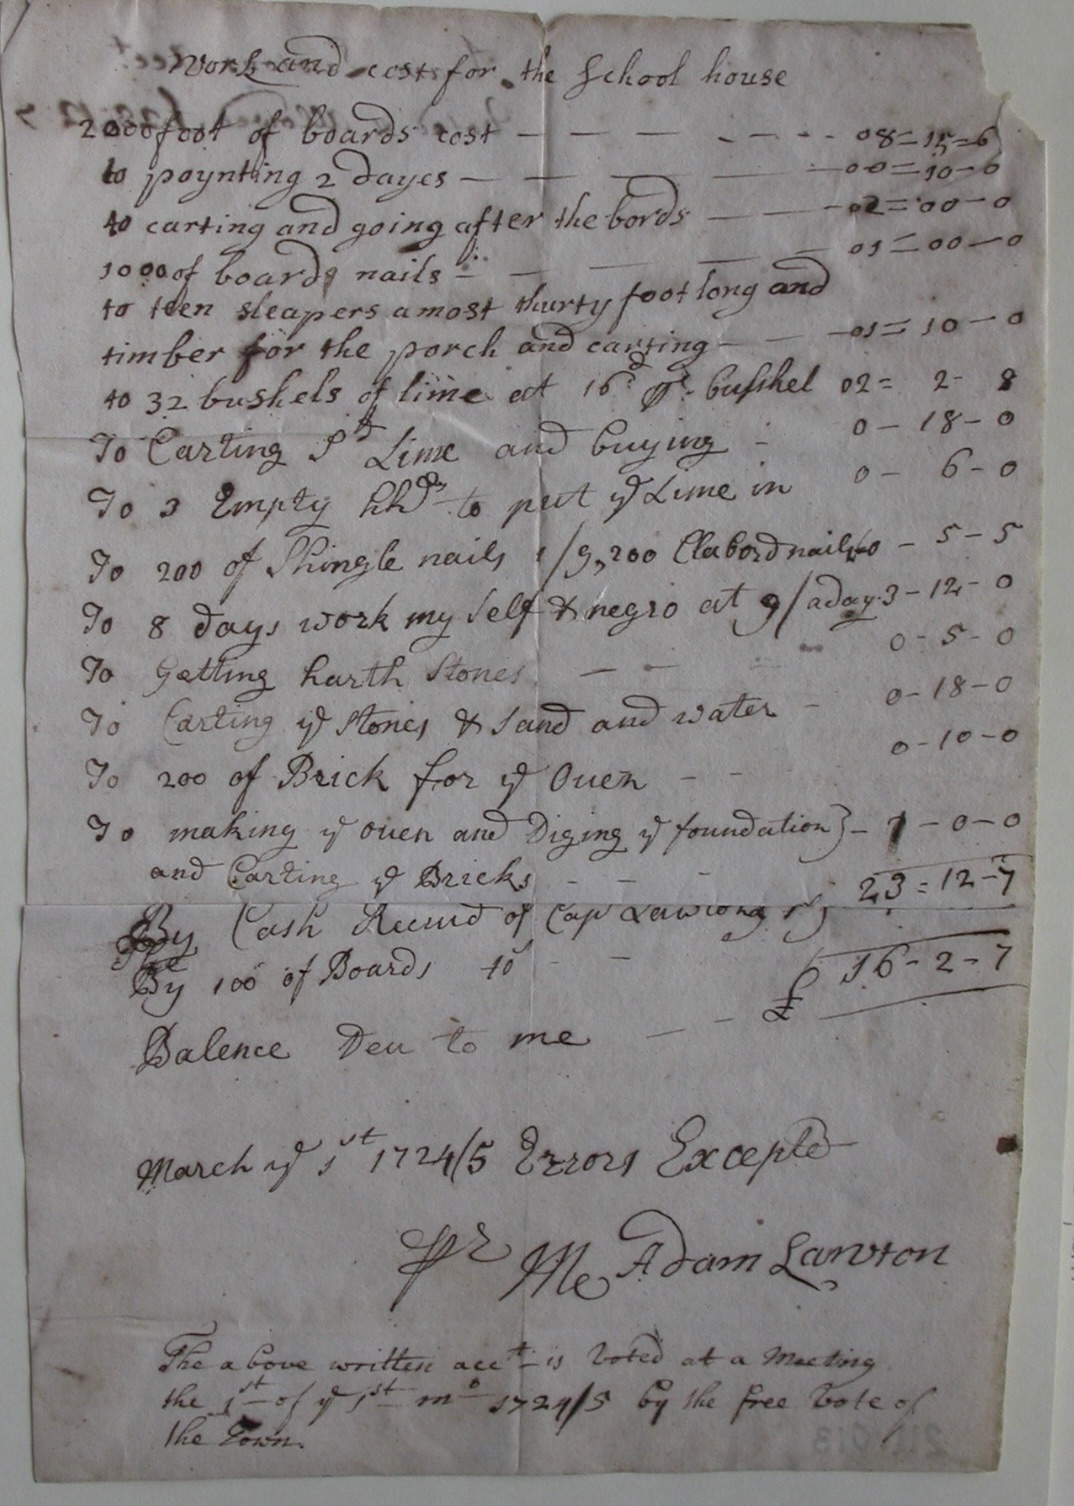 Work and cost for the School house
2000 foot of boards cost — — — - - - - 08=15=6
to poynting 2 dayes — — — — 00=10-0
to carting and going after the bords — — - 02=00-0
1000 of boards nails — — — — 01=00-0
to teen sleapers amost thurty foot long and
timber for the porch and carting — — 01=10-0
to 32 bushels of lime at 16d pr bushel 02= 2- 8
To Carting Sd Lime and buying - 0-18-0
To 3 Empty hhds to put ye Lime in 0- 6-0
To 200 of Shingle nails 1/9, 200 Clabord nails 0-5-5
To 8 days work my Self & negro at 9/ a day 3-12-0
To Getting harth Stones — - 0-5-0
To Carting ye stones & Sand and water - 0-18-0
To 200 of Brick for ye Oven - - 0-10-0
To making ye oven and Diging ye foundation} - 1-0-0
and Carting ye Bricks - - - 23=12-7
By Cash Received of Cap Lawtons
By 100 of Boards 10s - -
£ 16-2-7
Balence Deu to me — -
March ye 1st 1724/5 Errors Excepted
Pr Me Adam Lawton
The above written acct is Voted at a Meeting
the 1st of ye 1st mo 1724/5 by the free Vote of
the Town.